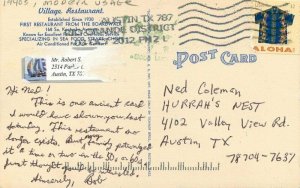 1940s, MODERN USAGE
Village Restaurant
Established Since 1930
FIRST RESTAURANT FROM THE BOARDWALK
168 So.
Known for Excellent
SPECIALIZING IN SEA FOOD, STEAKS, CHOPS
Air Conditioned
AUSTIN TX 787
RIO GRANDE DISTRICT
2012 PM 2 L
POST CARD
ALOHA!
Mr. Robert S.
2514
Austin, TX 787
Hi Ned!
This is one ancient card
I would have shown you last
Sunday. This restaurant no
longer exists. But family enjoyed
it a time or two in the 50s or 60s. I
first thought
Sincerely, Bob
Ned Coleman
HURRAH'S NEST
4102 Valley View Rd.
Austin TX
78704-7637